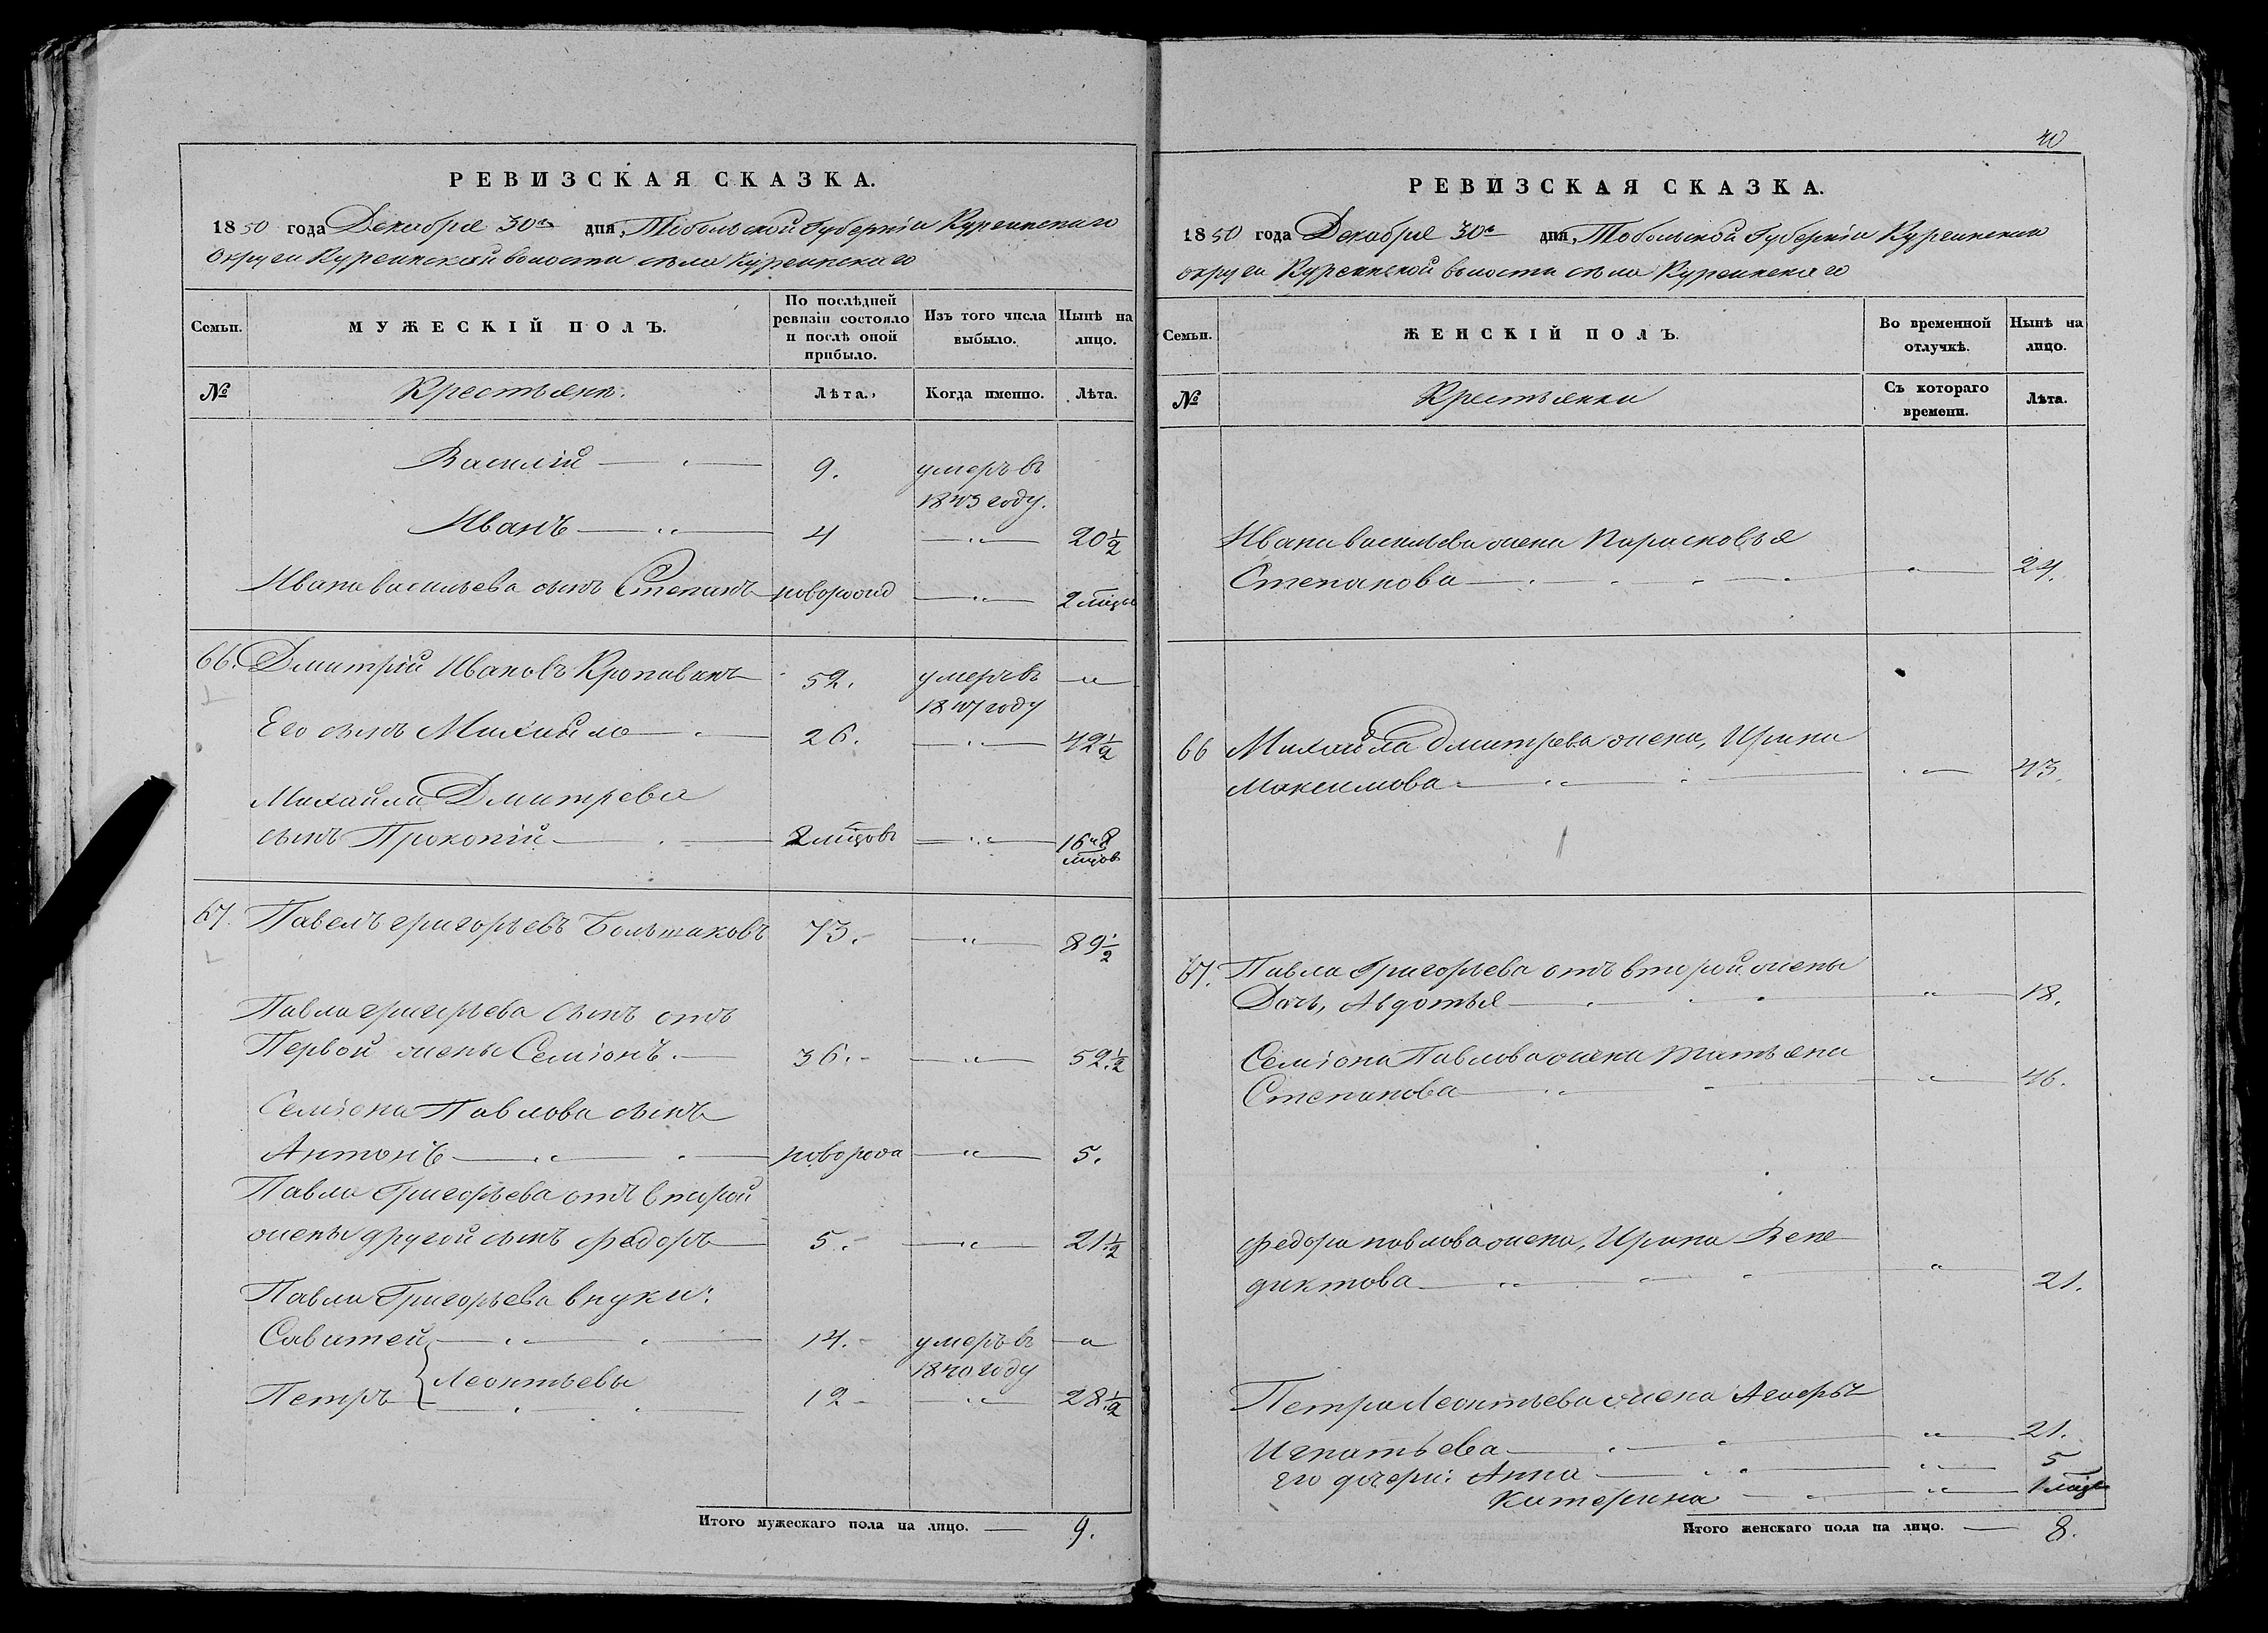 РЕВИЗСКАЯ СКАЗКА.
1850 года Декабря 30го дня, Тобольской Губерніи Курганскаго
Округи Курганской волости села Курганскаго
Семьи.
МУЖЕСКІЙ ПОЛЪ.
По послѣдней
ревизіи состояло
и послѣ оной
прибыло.
Изъ того числа
выбыло.
Нынѣ на
лицо.
№
Крестьянъ.
Лѣта.
Когда именно.
Лѣта.
Василій 9. умеръ въ
1843 году.
Иванъ 4 20 1/2
Ивана васильева сынъ Степанъ новорожд 2 мѣсяц
66. Дмитрій Ивановъ 52. умеръ въ
1847 году
Его сынъ Михайло 26. 42 1/2
Михайла Дмитрева
сынъ Прокопій 8 мцовъ 16 и 8
мцов
67. Павелъ григорьевъ Большаковъ 73. 89 1/2
Павла григорьева сынъ отъ
Первой жены Семіонъ. 36. 52 1/2
Семіона Павлова сынъ
Антонъ новорож 5.
Павла Григорьева отъ второй
жены другой сынъ федоръ 5. 21 1/2
Павла Григорьева внуки:
Савитей 14. умеръ въ
1840 году
Леонтьевы
Петръ 12 28 1/2
Итого мужескаго пола на лицо. 9.
40
РЕВИЗСКАЯ СКАЗКА.
1850 года Декабря 30го дня, Тобольской Губерніи Курганской
округи Курганской волости села Курганскаго
Семьи.
ЖЕНСКІЙ ПОЛЪ.
Во временной
отлучкѣ.
Нынѣ на
лицо.
№
Крестьянки
Съ котораго
времени.
Лѣта.
Ивана васильева жена Парасковья
Степанова 24.
66 Михайла Дмитрева жена, Ирина
Максимова 43.
67. Павла Григорьева отъ второй жены
Дочь, Авдотья 18.
Семіона Павлова жена татьяна
Степанова 46.
федора павлова жена, Ирина Вене
диктова 21.
Петра Леонтьева жена
Игнатьева 21.
его дочери: Анна 5
Катерина 1 мѣся
Итого женскаго пола на лицо. 8.